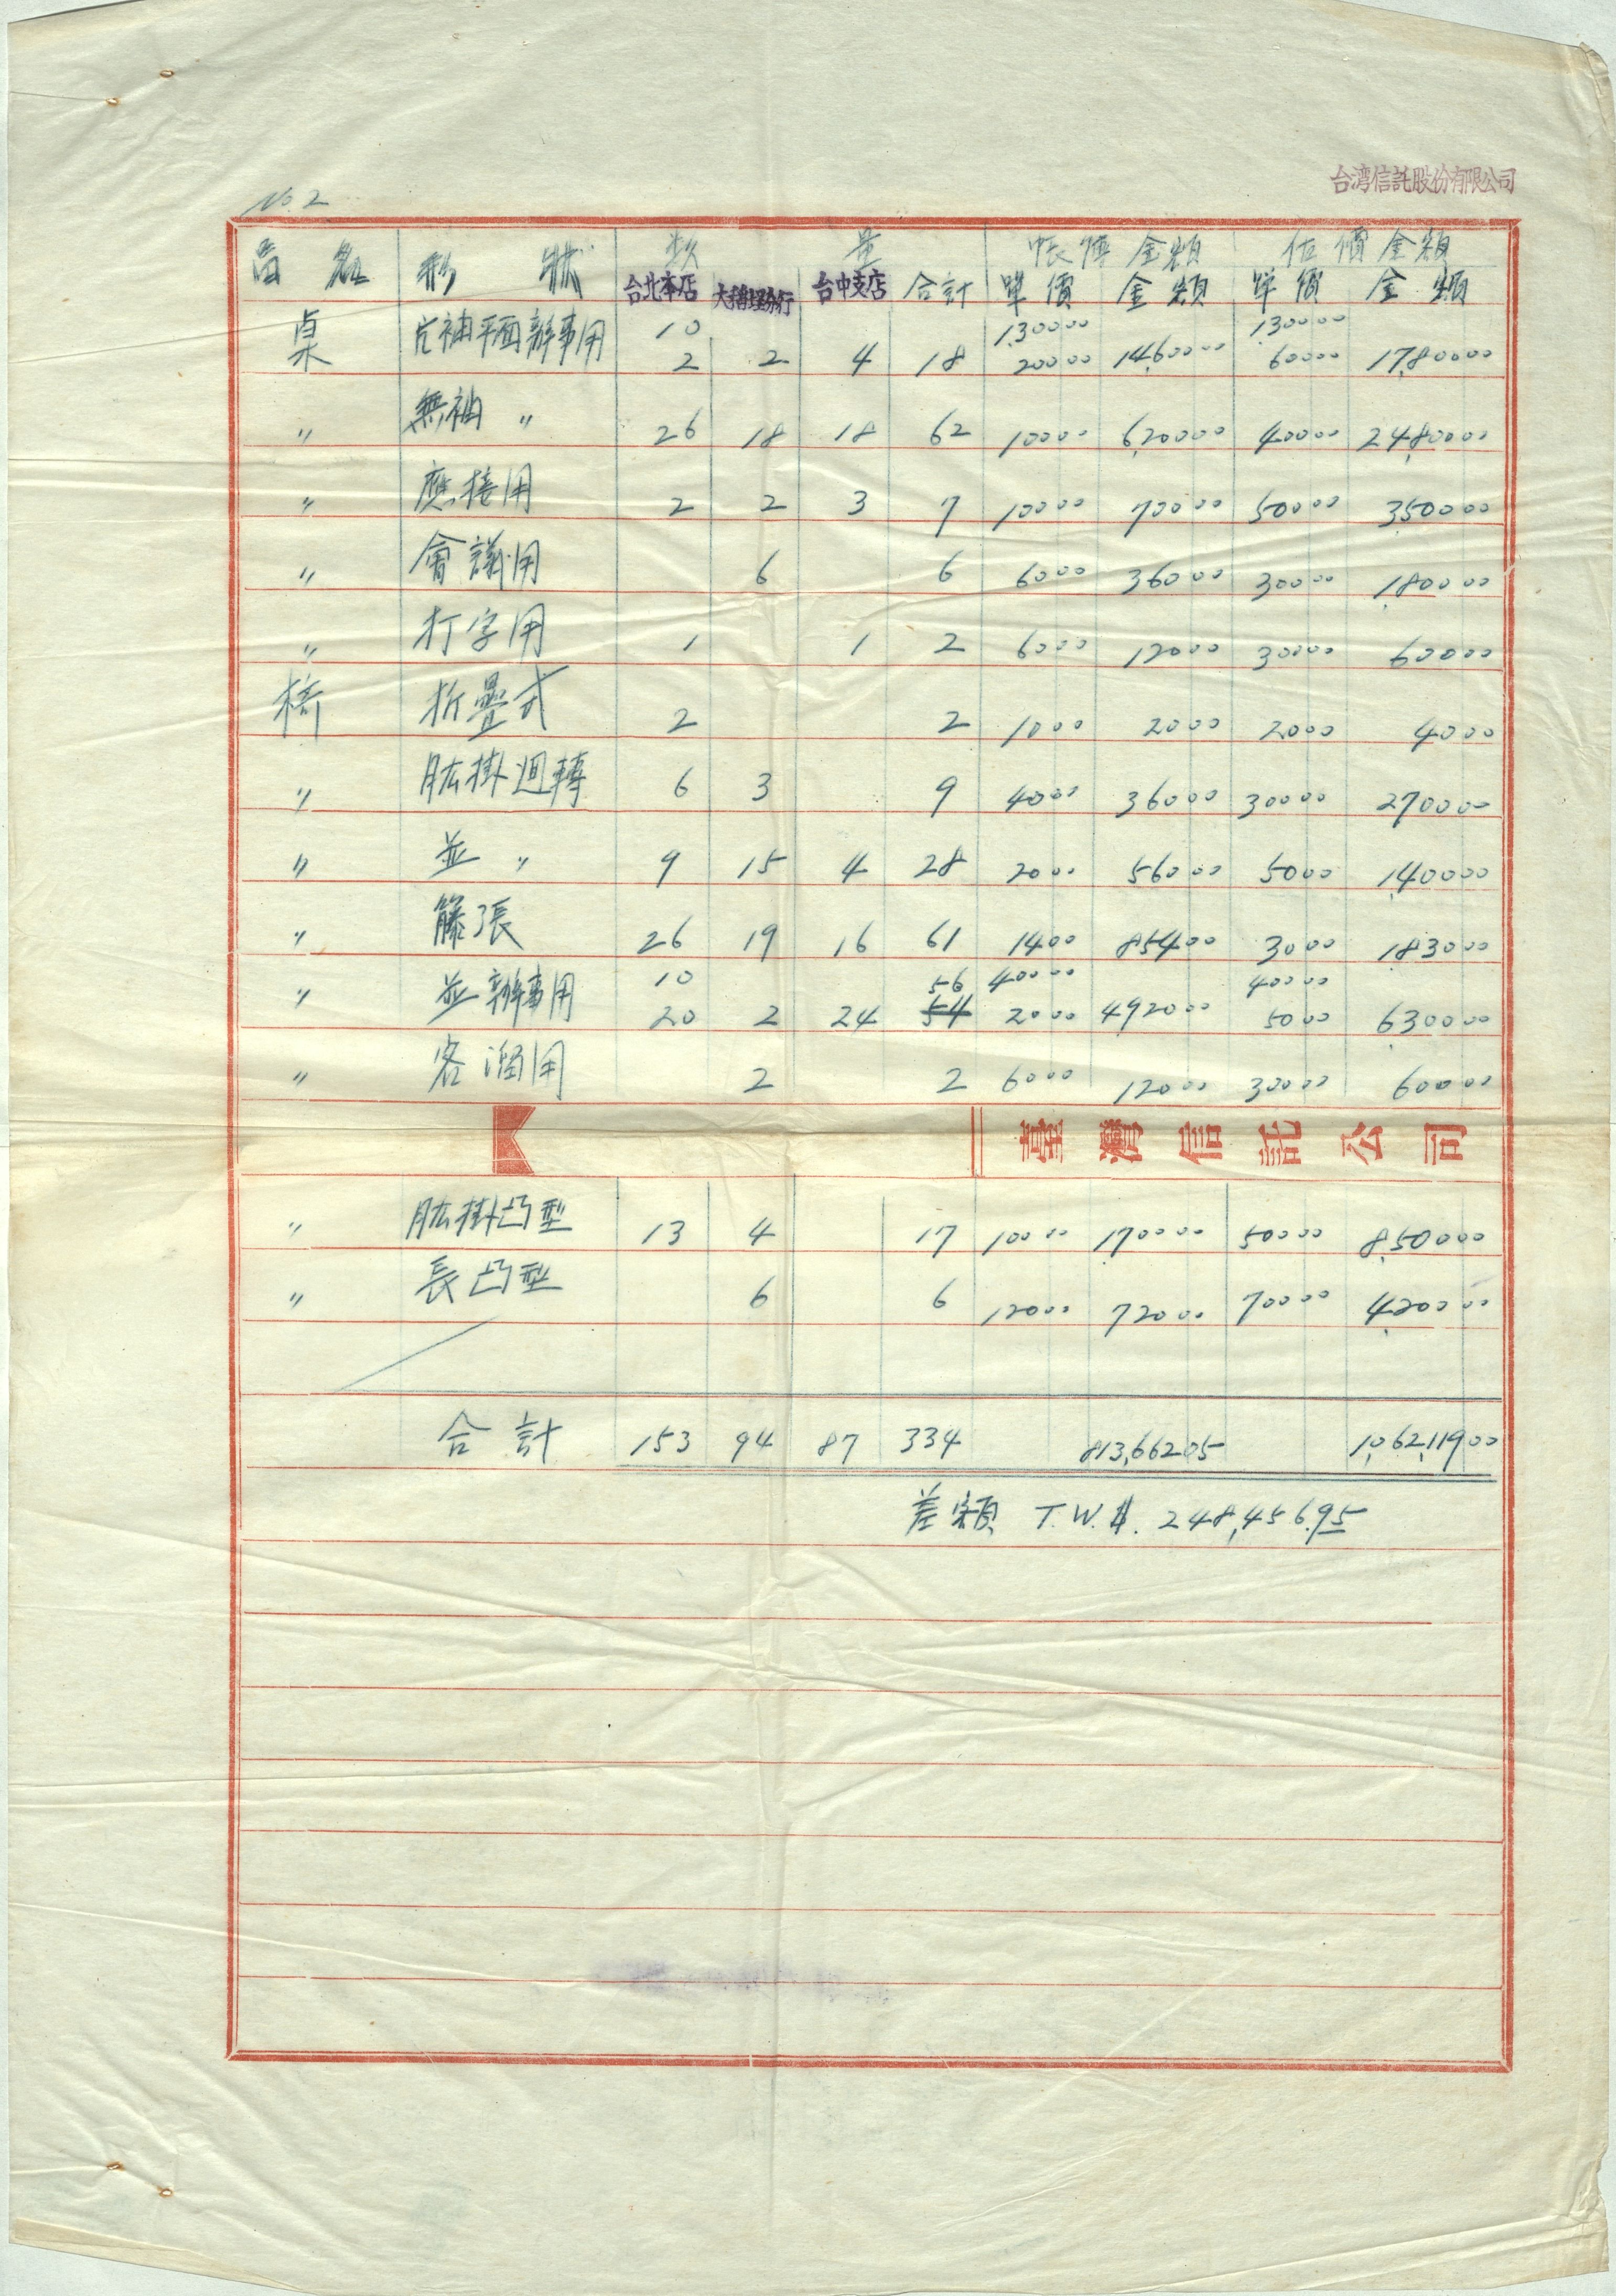 台湾信託股份有限公司
No.2
品名 形狀 数量 帳簿金額 估價金額
台北本店 大稻埕分行 台中支店 合計 單價 金額 單價 金額
10 1,30000 1,30000
桌 片袖平面辦事用 2 2 4 18 20000 14,60000 60000 17,80000
〃 無袖 〃 26 18 18 62 10000 6,20000 40000 24,80000
〃 應接用 2 2 3 7 10000 70000 50000 3,50000
〃 會議用 6 6 6000 36000 30000 1,80000
〃 打字用 1 1 2 6000 12000 30000 60000
椅 折疊式 2 2 1000 2000 2000 4000
〃 肱掛迴轉 6 3 9 4000 36000 30000 2,70000
〃 並 〃 9 15 4 28 2000 56000 5000 1,40000
〃 籐張 26 19 16 61 1400 85400 3000 1,83000
10 56 40000 40000
〃 並辦事用 20 2 24 54 2000 4,92000 5000 6,30000
〃 客溜用 2 2 6000 12000 30000 60000
臺灣信託公司
〃 肱掛凸型 13 4 17 10000 1,70000 50000 8,50000
〃 長凸型 6 6 12000 72000 70000 4,20000
合計 153 94 87 334 813,66205 1,062,11900
差額 T.W.$. 248,456.95